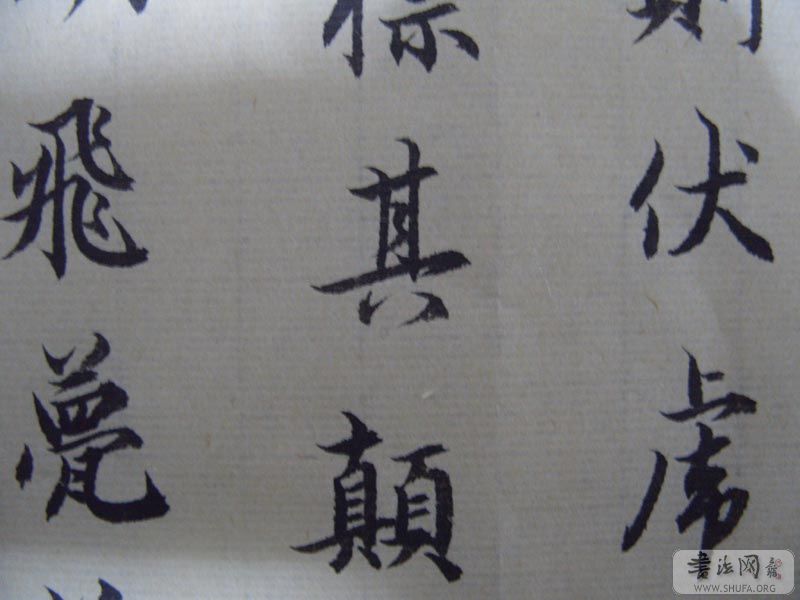 則伏虎
標其顛
飛甍
書法网
WWW.SHUFA.ORG